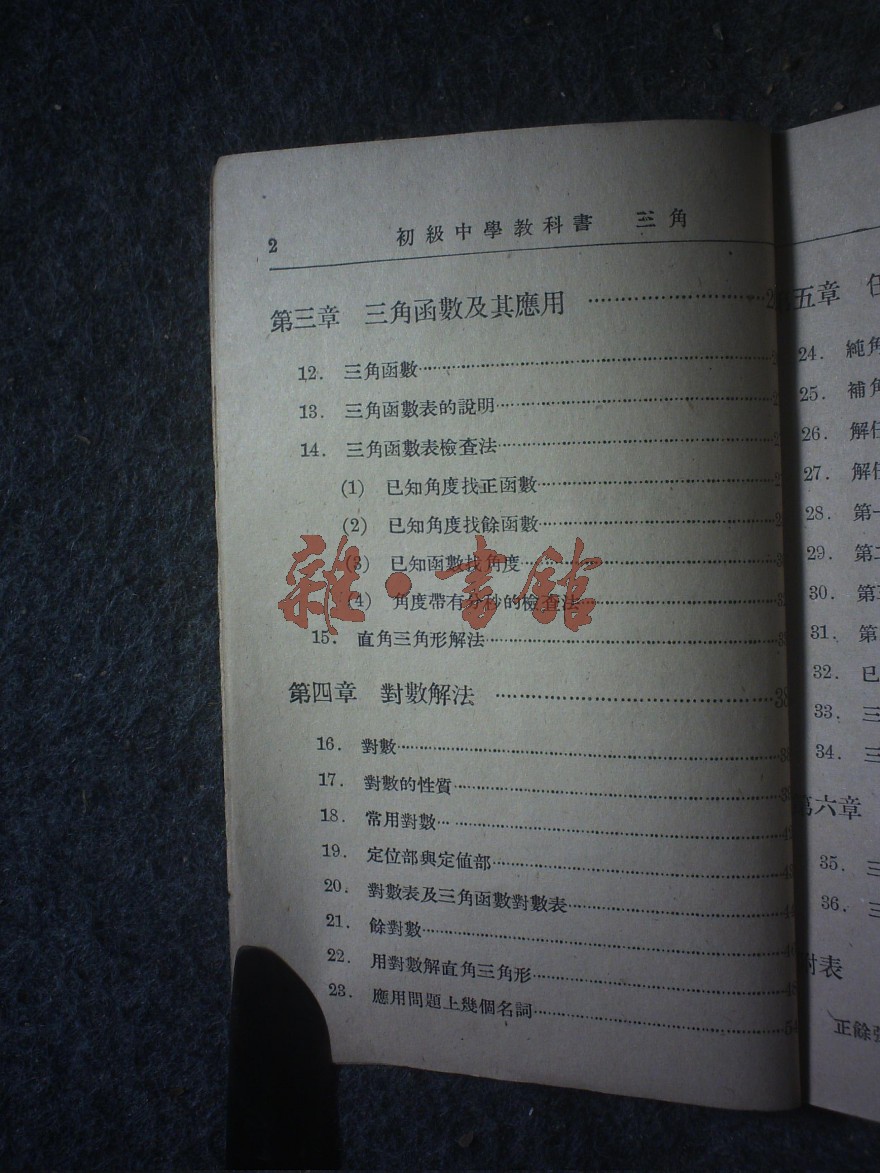 2 初級中學教科書 三角
第三章 三角函數及其應用
12. 三角函數
13. 三角函數表的說明
14. 三角函數表檢查法
(1) 已知角度找正函數
(2) 已知角度找餘函數
(3) 已知函數找角度
(4) 角度帶有分秒的檢查法
15. 直角三角形解法
第四章 對數解法 38
16. 對數
17. 對數的性質
18. 常用對數
19. 定位部與定值部
20. 對數表及三角函數對數表
21. 餘對數
22. 用對數解直角三角形
23. 應用問題上幾個名詞
雜·書館
五章
24. 純角
25. 補角
26. 解任
27. 解任
28. 第一
29. 第二
30. 第三
31. 第
32. 已
33. 三
34. 三
第六章
35. 三
36. 三
附表
正餘弦